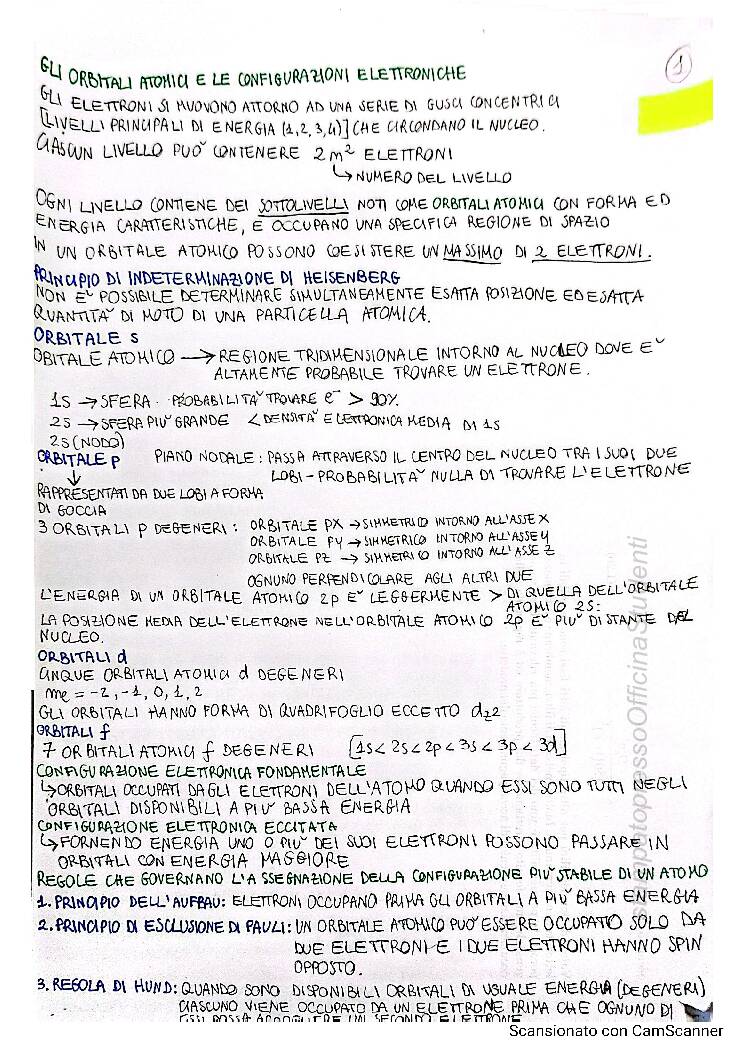 1
GLI ORBITALI ATOMICI E LE CONFIGURAZIONI ELETTRONICHE
GLI ELETTRONI SI MUOVONO ATTORNO AD UNA SERIE DI GUSCI CONCENTRICI
[LIVELLI PRINCIPALI DI ENERGIA (1,2,3,4)] CHE CIRCONDANO IL NUCLEO.
CIASCUN LIVELLO PUÒ CONTENERE 2m² ELETTRONI
↳ NUMERO DEL LIVELLO
OGNI LIVELLO CONTIENE DEI SOTTOLIVELLI NOTI COME ORBITALI ATOMICI CON FORMA ED
ENERGIA CARATTERISTICHE, E OCCUPANO UNA SPECIFICA REGIONE DI SPAZIO
IN UN ORBITALE ATOMICO POSSONO COESISTERE UN MASSIMO DI 2 ELETTRONI.
PRINCIPIO DI INDETERMINAZIONE DI HEISENBERG
NON È POSSIBILE DETERMINARE SIMULTANEAMENTE ESATTA POSIZIONE ED ESATTA
QUANTITÀ DI MOTO DI UNA PARTICELLA ATOMICA.
ORBITALE s
OBITALE ATOMICO → REGIONE TRIDIMENSIONALE INTORNO AL NUCLEO DOVE È
ALTAMENTE PROBABILE TROVARE UN ELETTRONE.
1S → SFERA. PROBABILITÀ TROVARE e⁻ > 90%
2S → SFERA PIÙ GRANDE < DENSITÀ ELETTRONICA MEDIA DI 1S
2S (NODO)
ORBITALE p PIANO NODALE: PASSA ATTRAVERSO IL CENTRO DEL NUCLEO TRA I SUOI DUE
↓ LOBI - PROBABILITÀ NULLA DI TROVARE L'ELETTRONE
RAPPRESENTATI DA DUE LOBI A FORMA
DI GOCCIA
3 ORBITALI p DEGENERI: ORBITALE PX → SIMMETRICO INTORNO ALL'ASSE X
ORBITALE PY → SIMMETRICO INTORNO ALL'ASSE Y
ORBITALE PZ → SIMMETRICO INTORNO ALL'ASSE Z
OGNUNO PERPENDICOLARE AGLI ALTRI DUE
L'ENERGIA DI UN ORBITALE ATOMICO 2p È LEGGERMENTE > DI QUELLA DELL'ORBITALE
ATOMICO 2S:
LA POSIZIONE MEDIA DELL'ELETTRONE NELL'ORBITALE ATOMICO 2p È PIÙ DISTANTE DAL
NUCLEO.
ORBITALI d
CINQUE ORBITALI ATOMICI d DEGENERI
me = -2, -1, 0, 1, 2
GLI ORBITALI HANNO FORMA DI QUADRIFOGLIO ECCETTO dz2
ORBITALI f
7 ORBITALI ATOMICI f DEGENERI [1s < 2s < 2p < 3s < 3p < 3d]
CONFIGURAZIONE ELETTRONICA FONDAMENTALE
↳ ORBITALI OCCUPATI DAGLI ELETTRONI DELL'ATOMO QUANDO ESSI SONO TUTTI NEGLI
ORBITALI DISPONIBILI A PIÙ BASSA ENERGIA
CONFIGURAZIONE ELETTRONICA ECCITATA
↳ FORNENDO ENERGIA UNO O PIÙ DEI SUOI ELETTRONI POSSONO PASSARE IN
ORBITALI CON ENERGIA MAGGIORE
REGOLE CHE GOVERNANO L'ASSEGNAZIONE DELLA CONFIGURAZIONE PIÙ STABILE DI UN ATOMO
1. PRINCIPIO DELL'AUFBAU: ELETTRONI OCCUPANO PRIMA GLI ORBITALI A PIÙ BASSA ENERGIA
2. PRINCIPIO DI ESCLUSIONE DI PAULI: UN ORBITALE ATOMICO PUÒ ESSERE OCCUPATO SOLO DA
DUE ELETTRONI E I DUE ELETTRONI HANNO SPIN
OPPOSTO.
3. REGOLA DI HUND: QUANDO SONO DISPONIBILI ORBITALI DI UGUALE ENERGIA (DEGENERI)
CIASCUNO VIENE OCCUPATO DA UN ELETTRONE PRIMA CHE OGNUNO DI
ESSI POSSA ACCOGLIERE UN SECONDO ELETTRONE
stampatopressoOfficinaStudenti
Scansionato con CamScanner